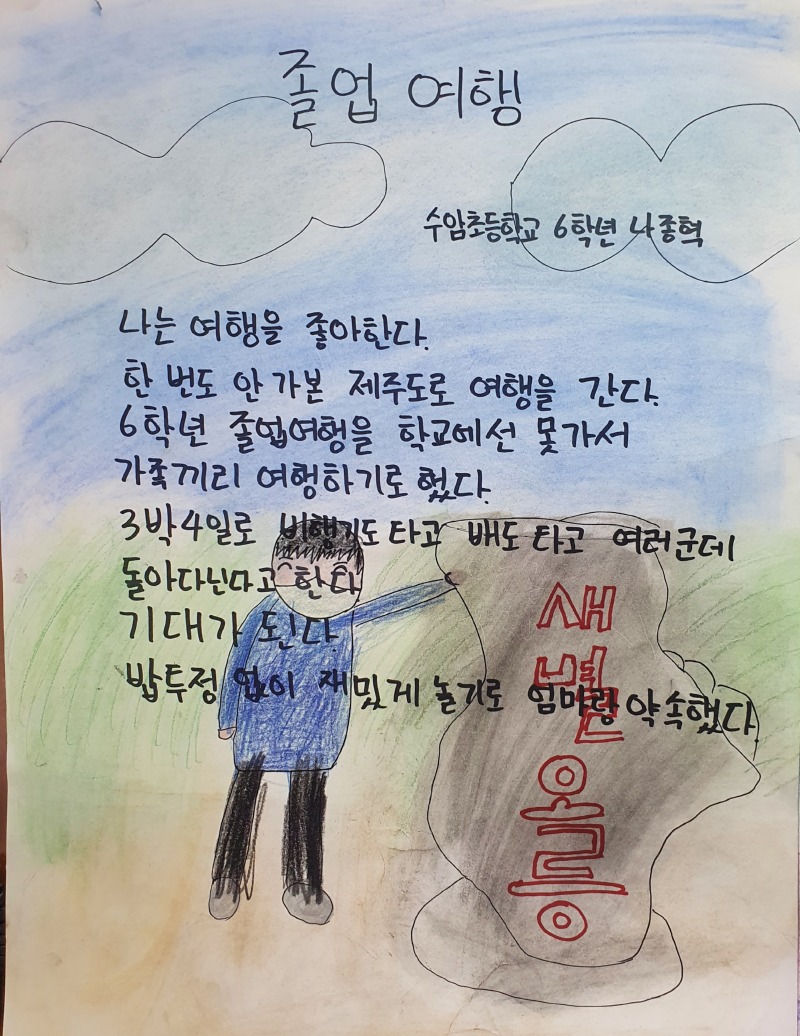 졸업 여행
수암초등학교 6학년 나종혁
나는 여행을 좋아한다.
한 번도 안 가본 제주도로 여행을 간다.
6학년 졸업여행을 학교에선 못가서
가족끼리 여행하기로 했다.
3박4일로 비행기도 타고 배도 타고 여러군데
돌아다닌다고 한다
기대가 된다.
밥투정 없이 재밌게 놀기로 엄마랑 약속했다.
새
별
오
름